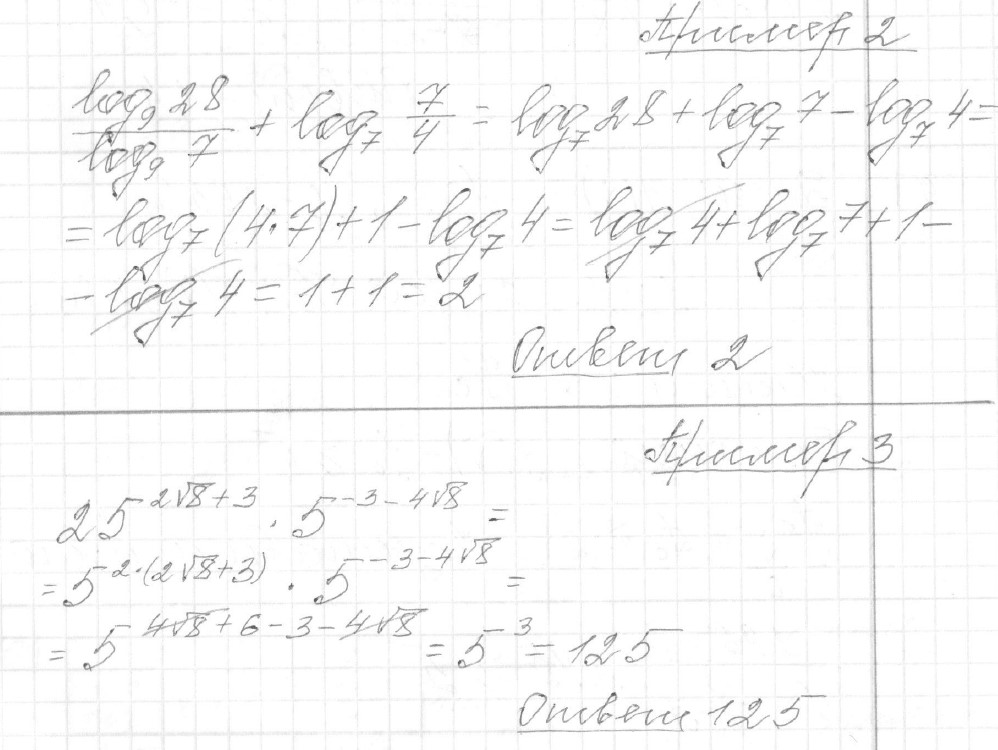 Пример 2
log₉ 28 / log₉ 7 + log₇ 7/4 = log₇ 28 + log₇ 7 - log₇ 4 =
= log₇ (4·7) + 1 - log₇ 4 = log₇ 4 + log₇ 7 + 1 -
- log₇ 4 = 1 + 1 = 2
Ответ 2
Пример 3
25^(2√8 + 3) · 5^(-3 - 4√8) =
= 5^(2·(2√8 + 3)) · 5^(-3 - 4√8) =
= 5^(4√8 + 6 - 3 - 4√8) = 5^3 = 125
Ответ 125